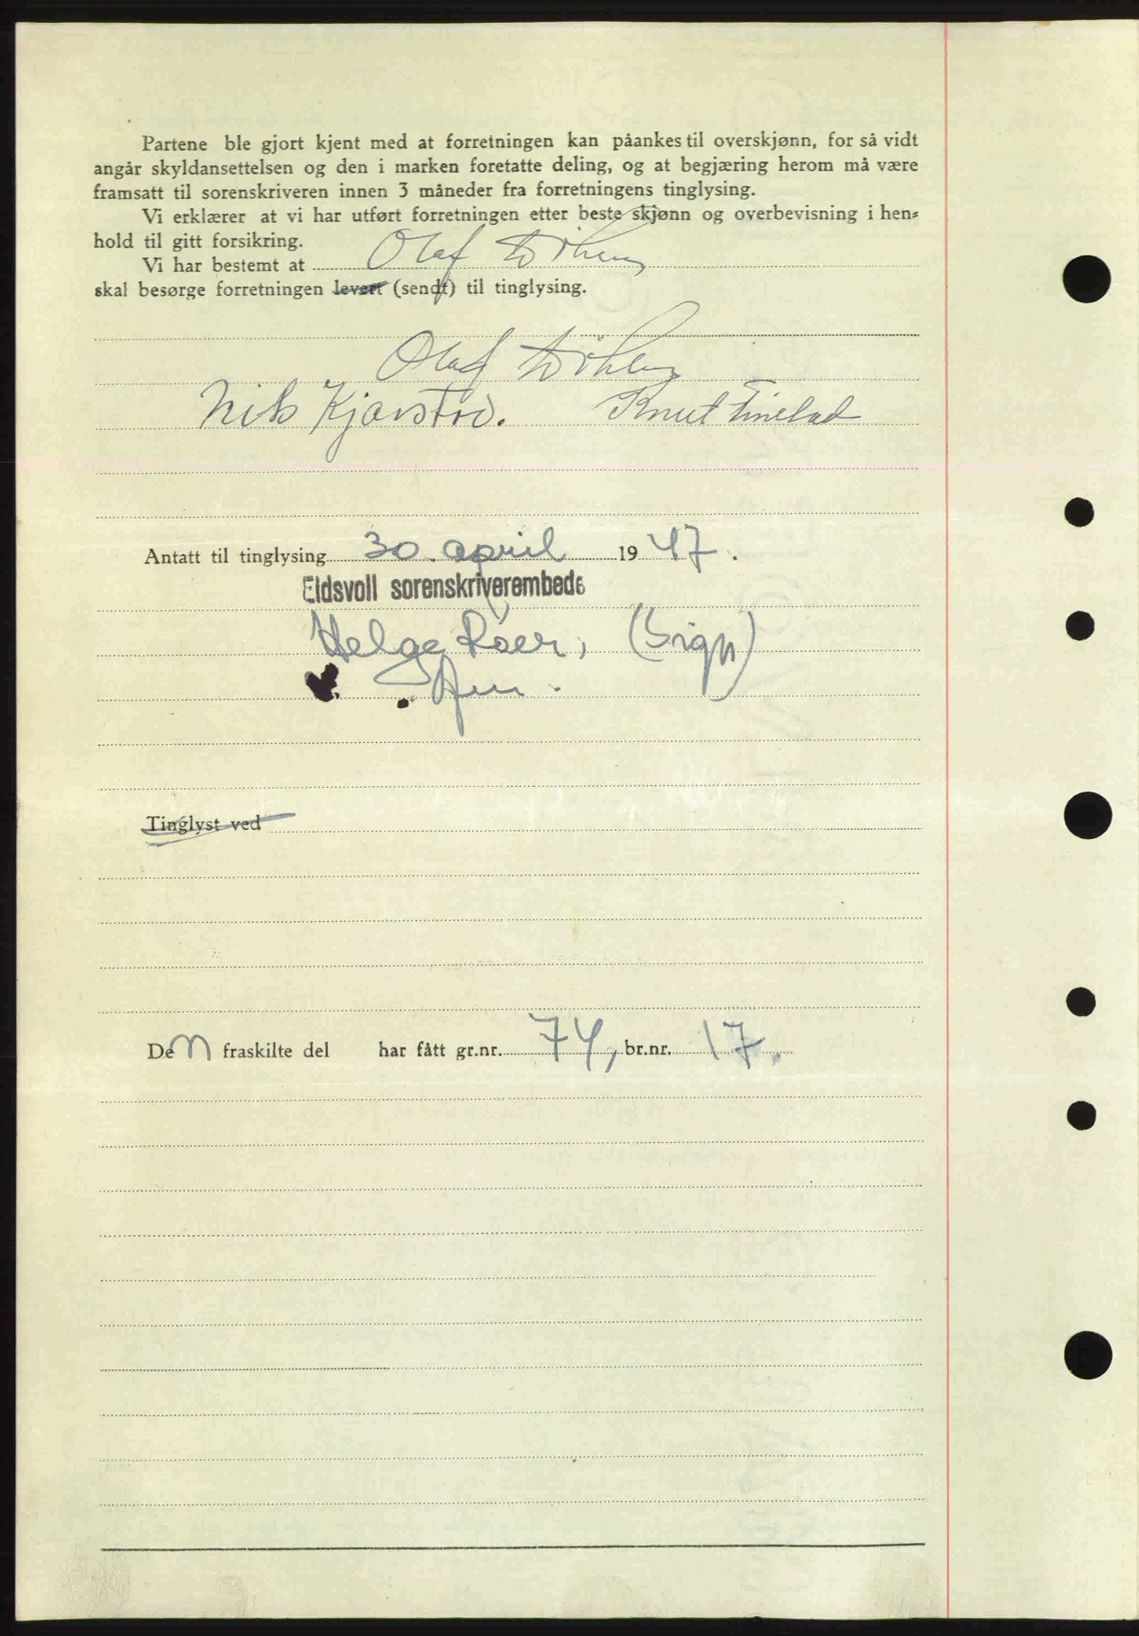 Partene ble gjort kjent med at forretningen kan påankes til overskjønn, for så vidt
angår skyldansettelsen og den i marken foretatte deling, og at begjæring herom må være
framsatt til sorenskriveren innen 3 måneder fra forretningens tinglysing.
Vi erklærer at vi har utført forretningen etter beste skjønn og overbevisning i hen-
hold til gitt forsikring.
Vi har bestemt at Olaf
skal besørge forretningen levert (sendt) til tinglysing.
Olaf
Nils Kjærstad. Knut
Antatt til tinglysing 30. april 1947.
Eidsvoll sorenskriverembede
Helge Roer, (Sign)
Tinglyst ved
Den fraskilte del har fått gr.nr. 74, br.nr. 17.